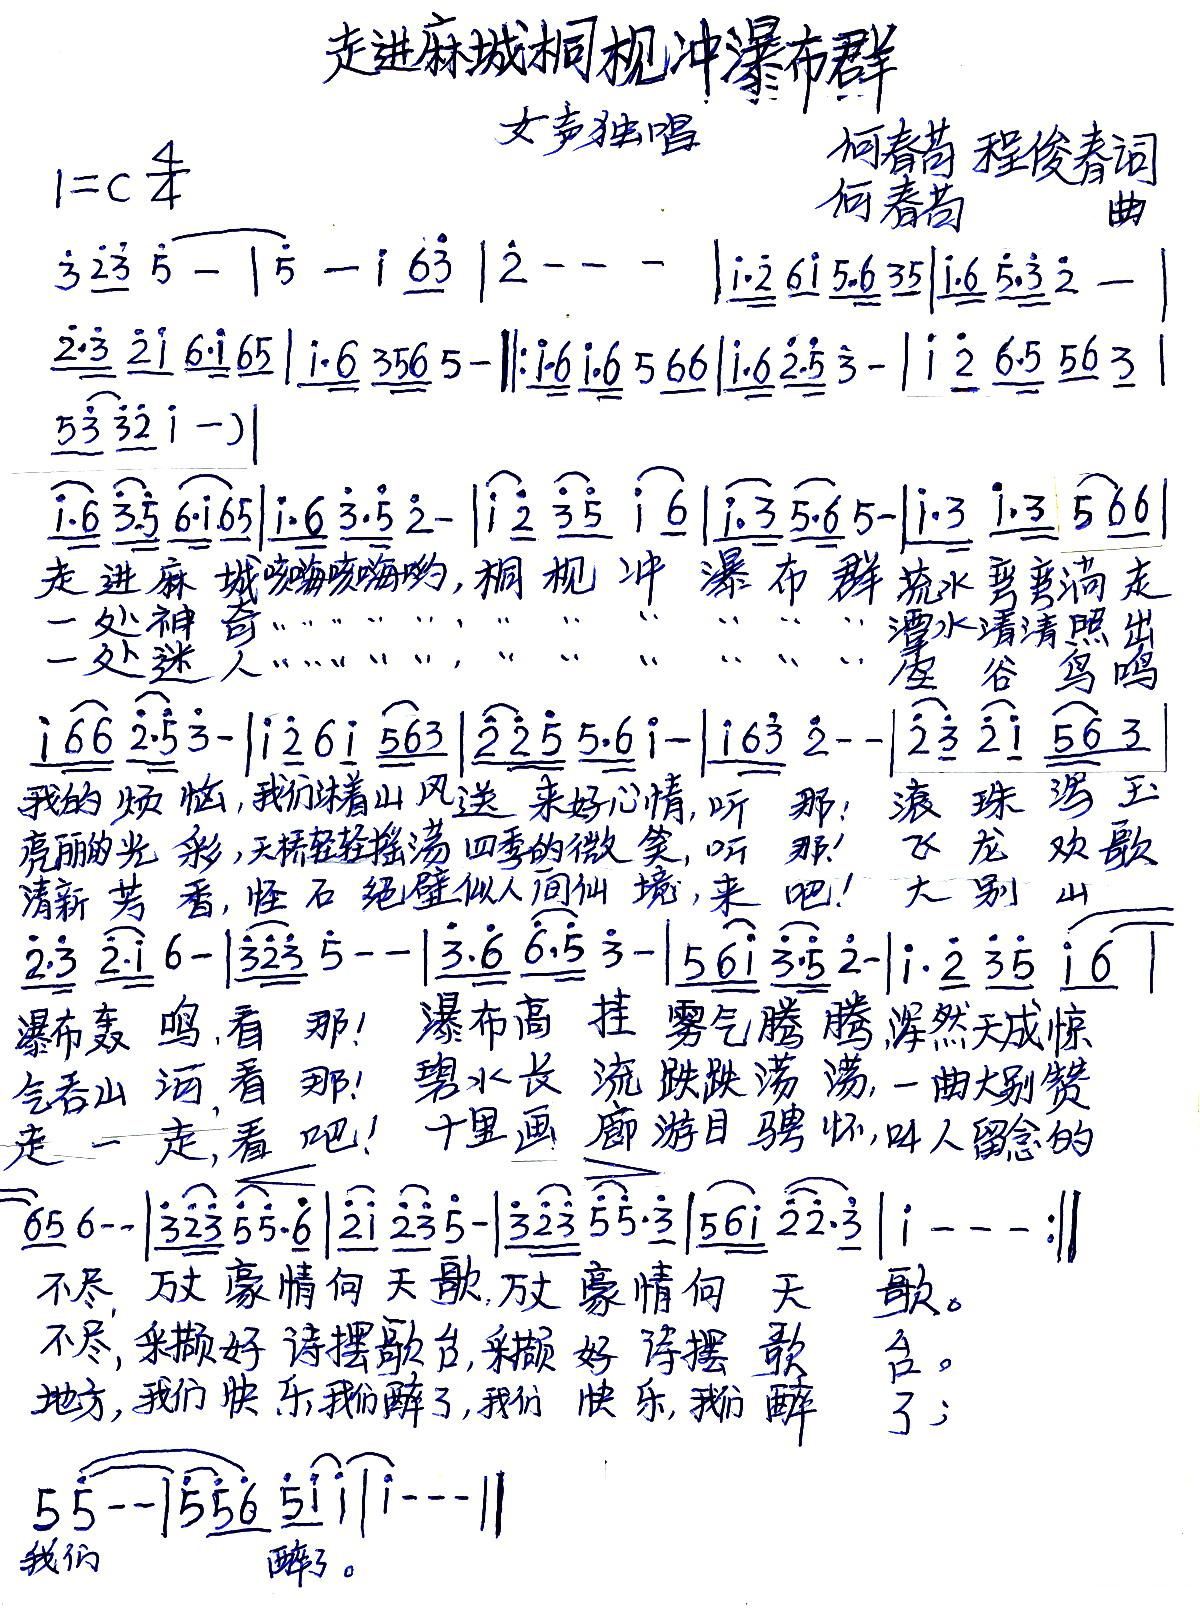 走进麻城桐枧冲瀑布群
女声独唱
何春苟 程俊春词
1=C 4/4
何春苟 曲
3 23 5 — | 5 — 1 63 | 2 - - - | 1·2 61 5·6 35 | 1·6 5·3 2 — |
2·3 21 6·1 65 | 1·6 356 5 - ‖: 1·6 1·6 5 66 | 1·6 2·5 3 - | 1 2 6·5 56 3 |
53 32 1 - ) |
1·6 3·5 6·1 65 | 1·6 3·5 2 - | 1 2 35 1 6 | 1·3 5·6 5 - | 1·3 1·3 5 66 |
走进麻城咳嗨咳嗨哟,桐枧冲瀑布群流水弯弯淌走
一处神奇〃〃〃〃〃,〃〃〃〃〃〃潭水清清照出
一处迷人〃〃〃〃〃,〃〃〃〃〃〃空谷鸟鸣
1 66 2·5 3 - | 1 2 6 1 563 | 2 2 5 5·6 1 - | 1 63 2 - - | 2 3 21 56 3 |
我的烦恼,我们沐着山风送来好心情,听那!滚珠泻玉
亮丽的光彩,天桥轻轻摇荡四季的微笑,听那!飞龙欢歌
清新芳香,怪石绝壁似人间仙境,来吧!大别山
2·3 2·1 6 - | 323 5 - - | 3·6 6·5 3 - | 561 3·5 2 - | 1·2 35 1 6 |
瀑布轰鸣,看那!瀑布高挂雾气腾腾,浑然天成惊
气吞山河,看那!碧水长流跌跌荡荡,一曲大别赞
走一走,看吧!十里画廊游目骋怀,叫人留念的
65 6 - - | 323 55·6 | 21 23 5 - | 323 55·3 | 561 22·3 | 1 - - - :‖
不尽,万丈豪情向天歌,万丈豪情向天歌。
不尽,采撷好诗摆歌台,采撷好诗摆歌台。
地方,我们快乐,我们醉了,我们快乐,我们醉了;
5 5 - - | 5 56 51 1 | 1 - - - ‖
我们醉了。